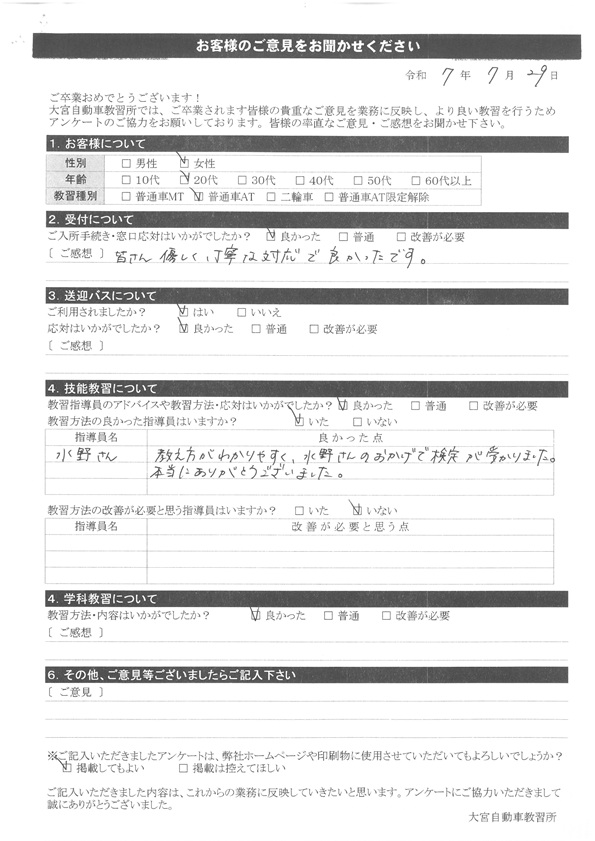 お客様のご意見をお聞かせください
令和 7 年 7 月 29 日
ご卒業おめでとうございます！
大宮自動車教習所では、ご卒業されます皆様の貴重なご意見を業務に反映し、より良い教習を行うため
アンケートのご協力をお願いしております。皆様の率直なご意見・ご感想をお聞かせ下さい。
1. お客様について
性別 □ 男性 ☑ 女性
年齢 □ 10代 ☑ 20代 □ 30代 □ 40代 □ 50代 □ 60代以上
教習種別 □ 普通車MT ☑ 普通車AT □ 二輪車 □ 普通車AT限定解除
2. 受付について
ご入所手続き・窓口応対はいかがでしたか？ ☑ 良かった □ 普通 □ 改善が必要
［ ご感想 ］ 皆さん優しく、丁寧な対応で良かったです。
3. 送迎バスについて
ご利用されましたか？ ☑ はい □ いいえ
応対はいかがでしたか？ ☑ 良かった □ 普通 □ 改善が必要
［ ご感想 ］
4. 技能教習について
教習指導員のアドバイスや教習方法・応対はいかがでしたか？ ☑ 良かった □ 普通 □ 改善が必要
教習方法の良かった指導員はいますか？ ☑ いた □ いない
指導員名 良かった点
水野さん 教え方がわかりやすく、水野さんのおかげで検定が受かりました。
本当にありがとうございました。
教習方法の改善が必要と思う指導員はいますか？ □ いた ☑ いない
指導員名 改善が必要と思う点
4. 学科教習について
教習方法・内容はいかがでしたか？ ☑ 良かった □ 普通 □ 改善が必要
［ ご感想 ］
6. その他、ご意見等ございましたらご記入下さい
［ ご意見 ］
※ご記入いただきましたアンケートは、弊社ホームページや印刷物に使用させていただいてもよろしいでしょうか？
☑ 掲載してもよい □ 掲載は控えてほしい
ご記入いただきました内容は、これからの業務に反映していきたいと思います。アンケートにご協力いただきまして
誠にありがとうございました。
大宮自動車教習所